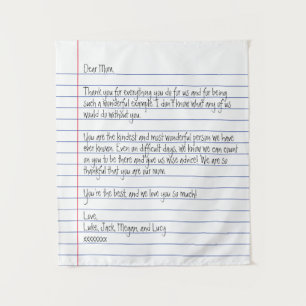 Dear Mom,
Thank you for everything you do for us and for being
such a wonderful example. I don't know what any of us
would do without you.
You are the kindest and most wonderful person we have
ever known. Even on difficult days, we know we can count
on you to be there and give us wise advice! We are so
thankful that you are our mom.
You're the best, and we love you so much!
Love,
Luke, Jack, Megan, and Lucy
xxxxxxxx